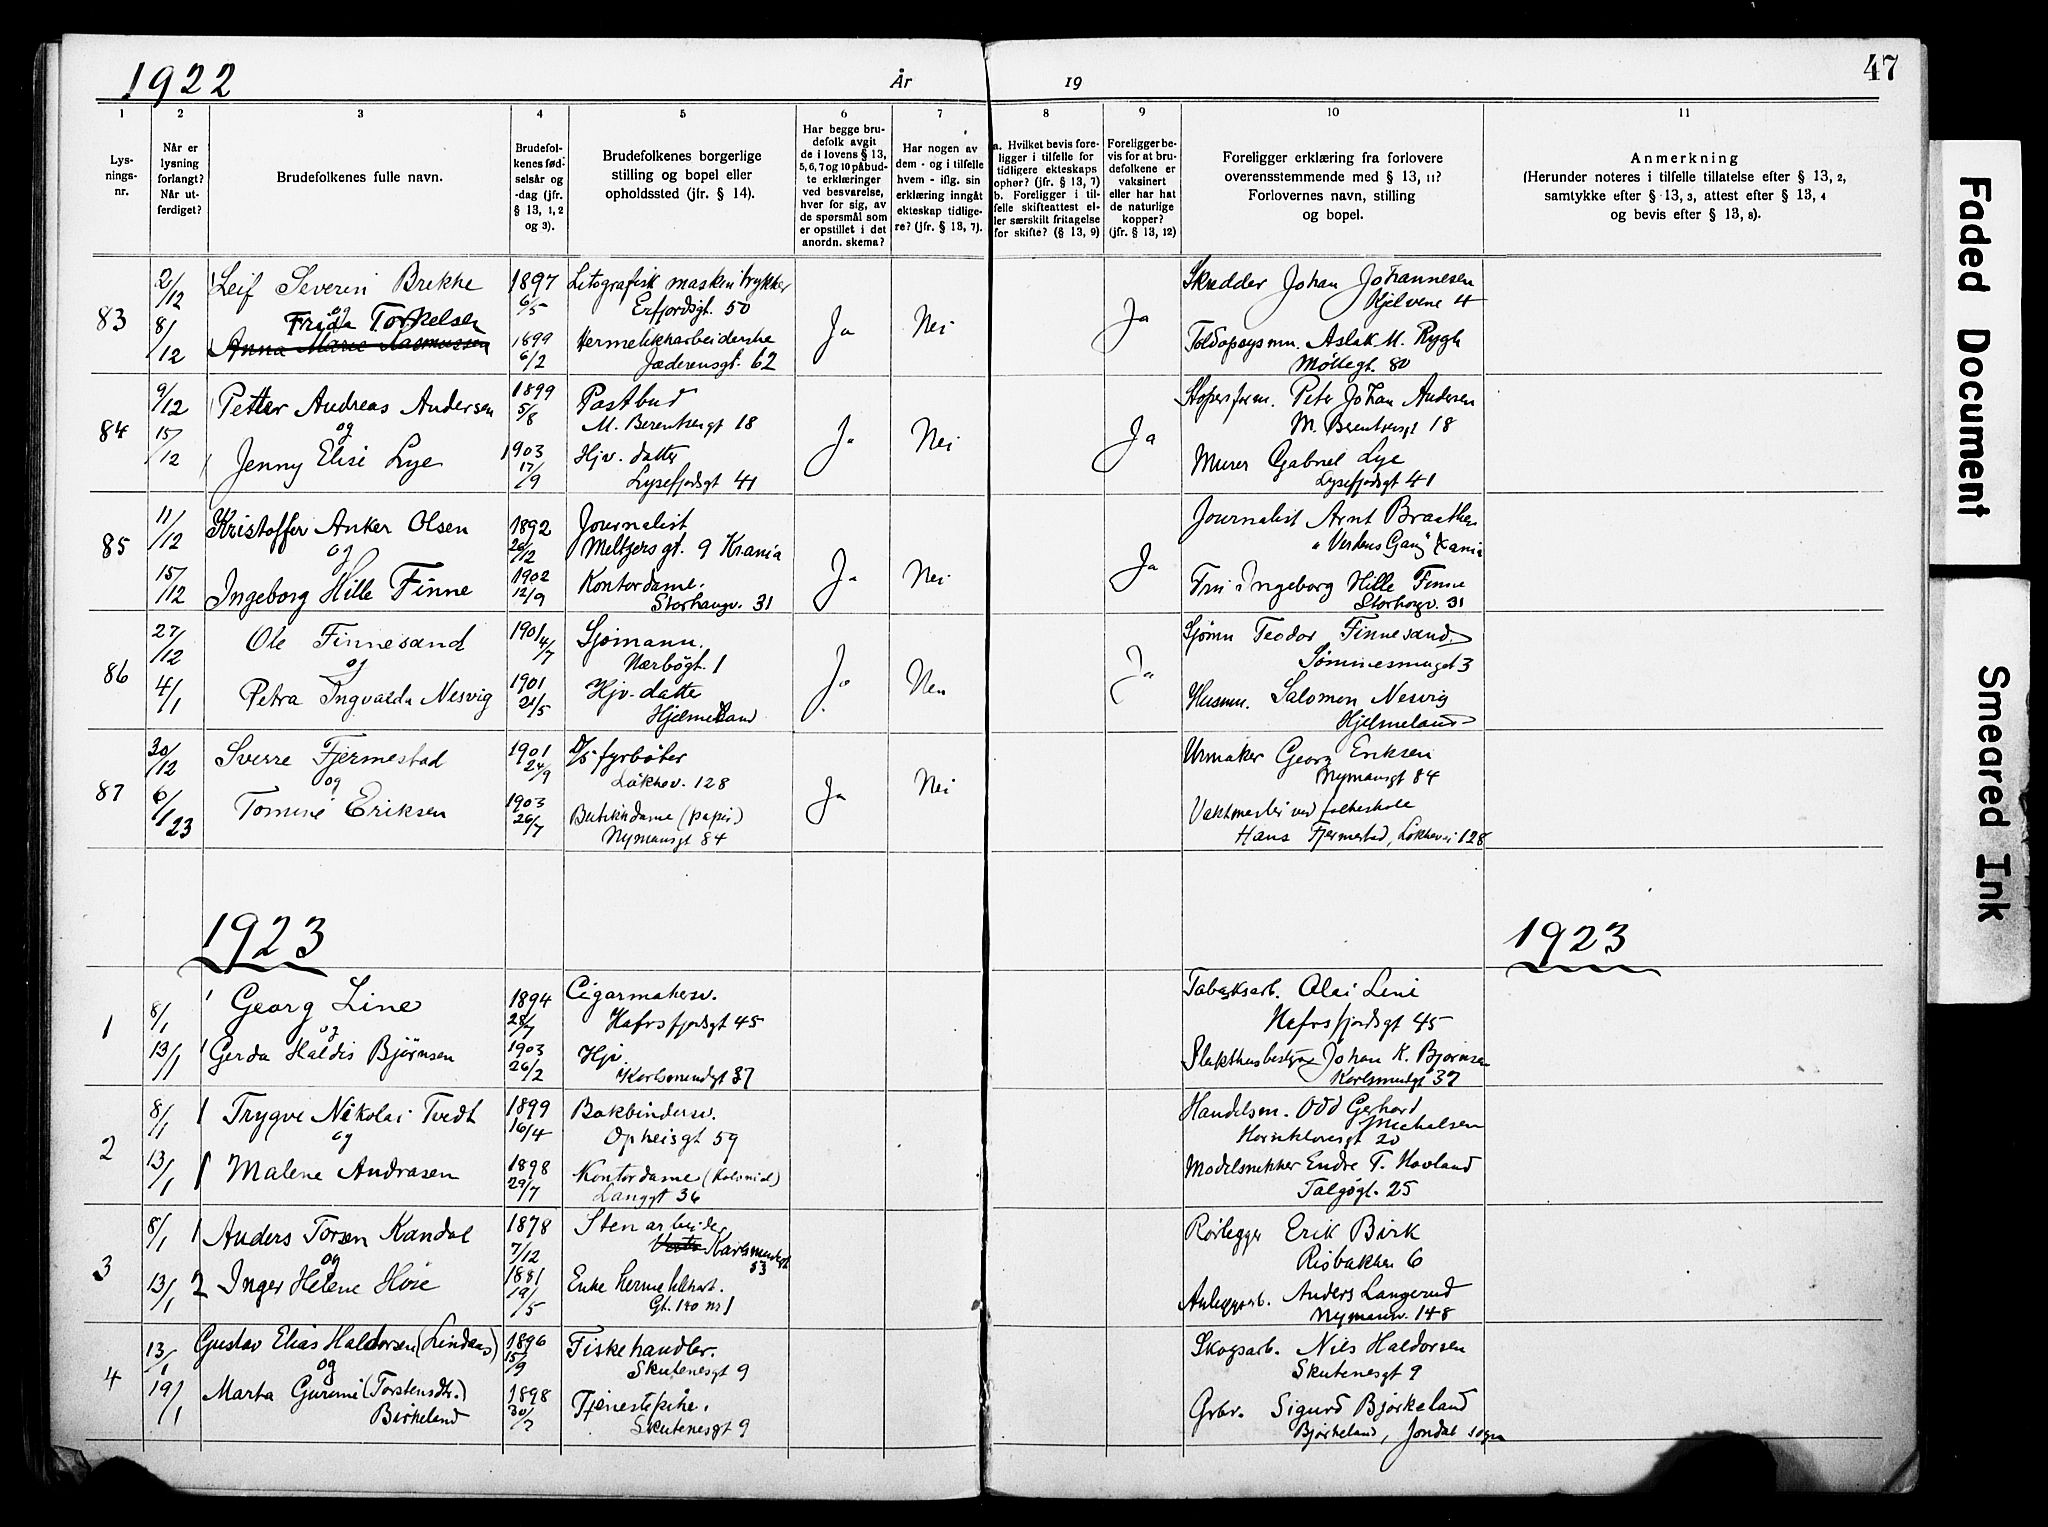 1922
År
19
47
1
2
3
4
5
6
7
8
9
10
11
Lys-
nings-
nr.
Når er
lysning
forlangt?
Når ut-
ferdiget?
Brudefolkenes fulle navn.
Brudefol-
kenes fød-
selsår og
-dag (jfr.
§ 13, 1, 2
og 3).
Brudefolkenes borgerlige
stilling og bopel eller
opholdssted (jfr. § 14).
Har begge bru-
defolk avgit
de i lovens § 13,
5, 6, 7 og 10 påbud-
te erklæringer
ved besvarelse,
hver for sig, av
de spørsmål som
er opstillet i det
anordn. skema?
Har nogen av
dem - og i tilfelle
hvem - iflg. sin
erklæring inngåt
ekteskap tidlige-
re? (jfr. § 13, 7).
a. Hvilket bevis fore-
ligger i tilfelle for
tidligere ekteskaps
ophør? (jfr. § 13, 7)
b. Foreligger i til-
felle skifteattest el-
ler særskilt fritagelse
for skifte? (§ 13, 9)
Foreligger be-
vis for at bru-
defolkene er
vaksinert
eller har hat
de naturlige
kopper?
(jfr. § 13, 12)
Foreligger erklæring fra forlovere
overensstemmende med § 13, 11?
Forlovernes navn, stilling
og bopel.
Anmerkning
(Herunder noteres i tilfelle tillatelse efter § 13, 2,
samtykke efter § 13, 3, attest efter § 13, 4
og bevis efter § 13, 8).
83
2/12
8/12
Leif Severin Brekke
og
Frida Torkelsen
Anna Marie Rasmussen
1897
6/5
1899
6/2
Litografisk maskintrykker
Erfjordsgt. 50
Hermetikkarbeiderske
Jæderensgt. 62
Ja
Nei
Ja
Skredder Johan Johannesen
Hjelvene 4
Toldopsysmn. Aslak M. Rygh
Møllegt. 80
84
9/12
15/12
Petter Andreas Andersen
og
Jenny Elise Lye
1899
5/8
1903
17/9
Postbud
M. Berentsensgt 18
Hjv. datter
Lysefjordsgt 41
Ja
Nei
Ja
Støperiform. Peter Johan Andersen
M. Berentsensgt 18
Murer Gabriel Lye
Lysefjordsgt 41
85
11/12
15/12
Kristoffer Anker Olsen
og
Ingeborg Hille Finne
1892
26/12
1902
12/9
Journalist
Meltzersgt. 9 Krania
Kontordame.
Storhaugv. 31
Ja
Nei
Ja
Journalist Arnt Braathen
"Verdens Gang" Krania
Fru Ingeborg Hille Finne
Storhaugv. 31
86
27/12
4/1
Ole Finnesand
og
Petra Ingvalda Nesvig
1901 4/7
1901
21/5
Sjømann.
Nærbögt. 1
Hjv. datte
Hjelmeland
Ja
Nei
Ja
Sjømn Teodor Finnesand
Sømmesmuget 3
Husmn. Salomon Nesvig
Hjelmeland
87
30/12
6/1 23
Sverre Fjermestad
og
Tomine Eriksen
1901
24/9
1903
26/7
D/S fyrbøter
Løkkev. 128
Butikkdame (papir)
Nymansgt 84
Ja
Nei
Urmaker Georg Eriksen
Nymansgt 84
Vaktmester ved folkeskole
Hans Fjermestad, Løkkevei 128
1923
1923
1
8/1
13/1
Georg Line
og
Gerda Haldis Bjørnsen
1894
28/7
1903
26/2
Cigarmakersv.
Hafrsfjordsgt 45
Hjv.
Karlsmindegt 37
Tobaksarb. Olai Line
Hafrsfjordsgt 45
Slakthusbestyrer Johan K. Bjørnsen
Karlsmindgt 37
2
8/1
13/1
Trygve Nikolai Tvedt
og
Malene Andrasen
1899
16/4
1898
29/7
Bokbindersv.
Opheisgt 59
Kontordame (Kolonial)
Langgt 36
Handelsm. Odd Gerhard
Michalsen
Hornklovesgt 20
Modelsnekker Endre T. Hovland
Talgøgt. 25
3
8/1
13/1
Anders Torsen Kandal
og
Inger Helene Høie
1878
7/12
1881
19/5
Stenarbeider
Karlsmindegt
53
Enke hermetikkarb.
Gt. 140 nr 1
Rørlegger Erik Birk
Risbakken 6
Anleggsarb. Anders Langerud
Nymannsv. 148
4
13/1
19/1
Gustav Elias Haldorsen (Lindaas)
og
Marta Gurine (Torstensdtr.)
Birkeland
1896
15/9
1898
30/7
Fiskehandler.
Skutenesgt 9
Tjenestepike.
Skutenesgt 9
Skogsarb. Nils Haldorsen
Skutenesgt 9
Grbr. Sigurd Bjørkeland
Bjørkeland, Jondal sogn
Faded Document
Smeared Ink